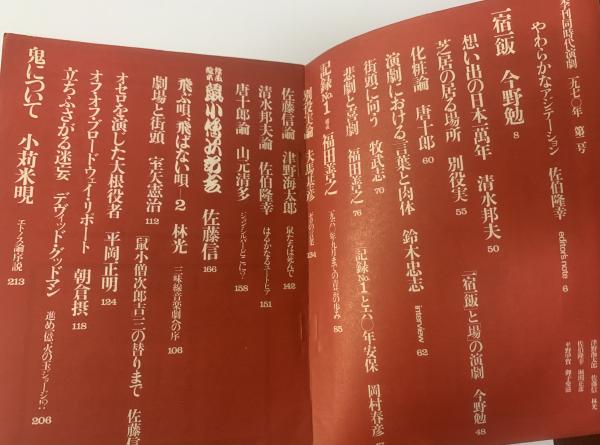 季刊同時代演劇 一九七〇年 第二号
やわらかなアジテーション 佐伯隆幸 editor's note 6
一宿一飯 今野勉 8
「一宿一飯と場」の演劇 今野勉 48
想い出の日本一萬年 清水邦夫 50
芝居の居る場所 別役実 55
化粧論 唐十郎 60
演劇における言葉と肉体 鈴木忠志 interview 62
街頭に向う 牧武志 70
悲劇と喜劇 福田善之 76
記録No.1 福田善之
「記録No.1」と六〇年安保 岡村春彦
85
別役実論 大馬基彦 134
佐藤信論 津野海太郎 142
清水邦夫論 佐伯隆幸 はるかなるユートピア 151
唐十郎論 山元清多 ジョン・シルバーどこに!? 158
鼠小僧次郎吉 佐藤信 166
飛ぶ唄、飛ばない唄—2 林光 三味線音楽劇への序 106
劇場と街頭 室矢憲治 112
「鼠小僧次郎吉」三の替りまで 佐藤信
オセロを演した大根役者 平岡正明 124
オフ・オフ・ブロードウェイ・リポート 朝倉摂 118
立ちふさがる迷妄 デヴィッド・グッドマン 進め一億火の玉ショーじゃ!? 206
鬼について 小苅米晛 エトノス論序説 213
津野海太郎 佐藤信 林光